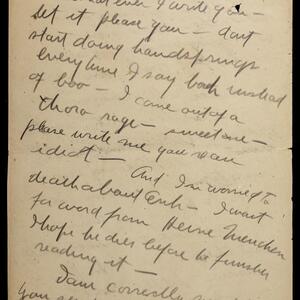 ever I write you—
let it please you— dont
start doing handsprings
everytime I say bah instead
of boo— I come out of a
rage— sweet one—
please write me you
idiot—
And I'm worried to
death about — I wait
for word from Herne Mencken
I hope he dies before he finishes
reading it—
I am correctly
you